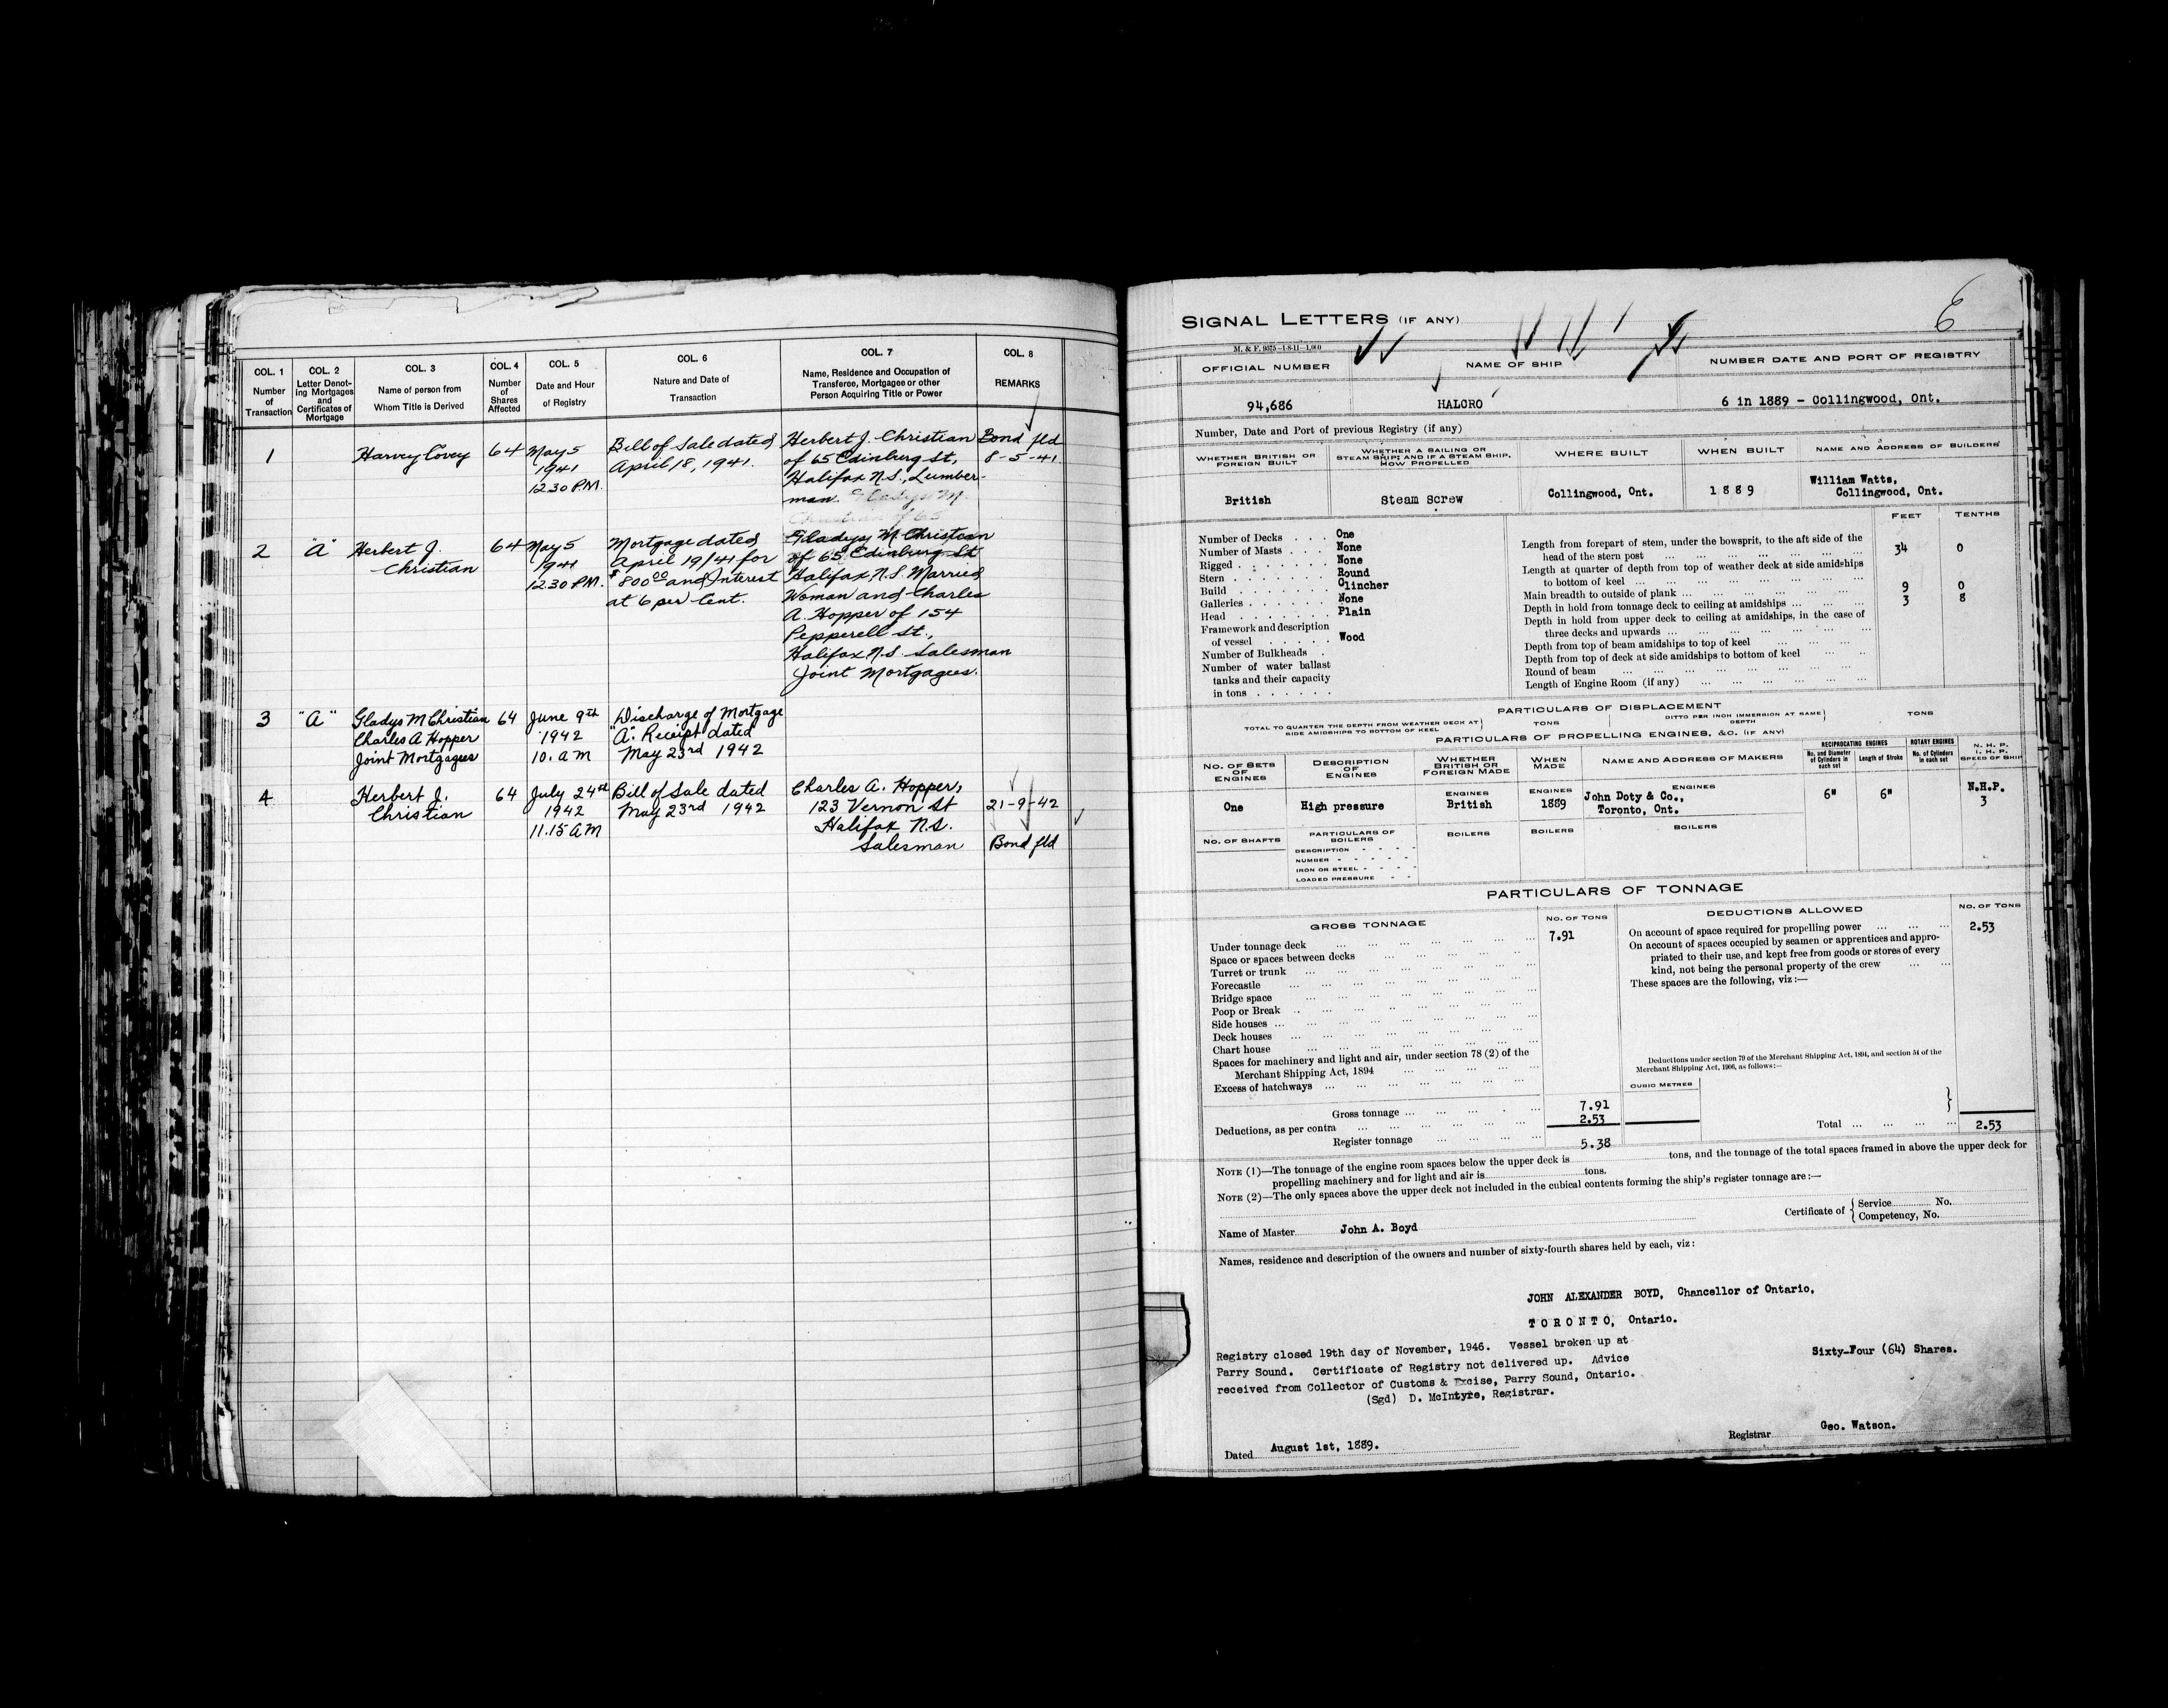 COL. 1
Number
of
Transaction
COL. 2
Letter Denot-
ing Mortgages
and
Certificates of
Mortgage
COL. 3
Name of person from
Whom Title is Derived
COL. 4
Number
of
Shares
Affected
COL. 5
Date and Hour
of Registry
COL. 6
Nature and Date of
Transaction
COL. 7
Name, Residence and Occupation of
Transferee, Mortgagee or other
Person Acquiring Title or Power
COL. 8
REMARKS
1
Harvey Covey
64
May 5
1941
12.30 P.M.
Bill of Sale dated
April 18, 1941.
Herbert J. Christian
of 65 Edinburg St,
Halifax N.S., Lumber-
man. Gladys M.
Christian of 65
Bond fld
8-5-41
2
"A"
Herbert J.
Christian
64
May 5
1941
12.30 P.M.
Mortgage dated
April 19/41 for
$800.00 and Interest
at 6 per Cent.
Gladys M. Christian
of 65 Edinburg St
Halifax N.S. Married
Woman and Charles
A. Hopper of 154
Pepperell St.,
Halifax N.S. Salesman
Joint Mortgagees.
3
"A"
Gladys M Christian
Charles A Hopper
Joint Mortgagees
64
June 9th
1942
10. a m
Discharge of Mortgage
"A". Receipt dated
May 23rd 1942
4
Herbert J.
Christian
64
July 24th
1942
11.15 AM
Bill of Sale dated
May 23rd 1942
Charles A. Hopper,
123 Vernon St
Halifax N.S.
Salesman
21-9-42
Bond fld
6
SIGNAL LETTERS (IF ANY)
M. & F. 9375-1-8-11-1,000
OFFICIAL NUMBER
NAME OF SHIP
NUMBER DATE AND PORT OF REGISTRY
94,686
HALCRO
6 in 1889 - Collingwood, Ont.
Number, Date and Port of previous Registry (if any)
WHETHER BRITISH OR
FOREIGN BUILT
WHETHER A SAILING OR
STEAM SHIP; AND IF A STEAM SHIP,
HOW PROPELLED
WHERE BUILT
WHEN BUILT
NAME AND ADDRESS OF BUILDERS
British
Steam Screw
Collingwood, Ont.
1889
William Watts,
Collingwood, Ont.
FEET
TENTHS
Number of Decks . . . One
Number of Masts . . . None
Rigged . . . None
Stern . . . Round
Build . . . Clincher
Galleries . . . None
Head . . . Plain
Framework and description
of vessel . . . Wood
Number of Bulkheads .
Number of water ballast
tanks and their capacity
in tons . . . . . .
Length from forepart of stem, under the bowsprit, to the aft side of the
head of the stern post 34 0
Length at quarter of depth from top of weather deck at side amidships
to bottom of keel
Main breadth to outside of plank 9 0
Depth in hold from tonnage deck to ceiling at amidships 3 8
Depth in hold from upper deck to ceiling at amidships, in the case of
three decks and upwards
Depth from top of beam amidships to top of keel
Depth from top of deck at side amidships to bottom of keel
Round of beam
Length of Engine Room (if any)
PARTICULARS OF DISPLACEMENT
TOTAL TO QUARTER THE DEPTH FROM WEATHER DECK AT
SIDE AMIDSHIPS TO BOTTOM OF KEEL
TONS
DITTO PER INCH IMMERSION AT SAME
DEPTH
TONS
PARTICULARS OF PROPELLING ENGINES, &C. (IF ANY)
NO. OF SETS
OF
ENGINES
DESCRIPTION
OF
ENGINES
WHETHER
BRITISH OR
FOREIGN MADE
WHEN
MADE
NAME AND ADDRESS OF MAKERS
RECIPROCATING ENGINES
No. and Diameter
of Cylinders in
each set
Length of Stroke
ROTARY ENGINES
No. of Cylinders
in each set
N. H. P.
I. H. P.
SPEED OF SHIP
One
High pressure
ENGINES
British
ENGINES
1889
ENGINES
John Doty & Co.,
Toronto, Ont.
6"
6"
N.H.P.
3
NO. OF SHAFTS
PARTICULARS OF
BOILERS
DESCRIPTION - - - -
NUMBER - - - -
IRON OR STEEL - - - -
LOADED PRESSURE - -
BOILERS
BOILERS
BOILERS
PARTICULARS OF TONNAGE
GROSS TONNAGE
NO. OF TONS
DEDUCTIONS ALLOWED
NO. OF TONS
Under tonnage deck 7.91
Space or spaces between decks
Turret or trunk
Forecastle
Bridge space
Poop or Break
Side houses
Deck houses
Chart house
Spaces for machinery and light and air, under section 78 (2) of the
Merchant Shipping Act, 1894
Excess of hatchways
Gross tonnage 7.91
Deductions, as per contra 2.53
Register tonnage 5.38
On account of space required for propelling power 2.53
On account of spaces occupied by seamen or apprentices and appro-
priated to their use, and kept free from goods or stores of every
kind, not being the personal property of the crew
These spaces are the following, viz :—
Deductions under section 79 of the Merchant Shipping Act, 1894, and section 54 of the
Merchant Shipping Act, 1906, as follows :—
CUBIC METRES
Total 2.53
NOTE (1)—The tonnage of the engine room spaces below the upper deck is tons, and the tonnage of the total spaces framed in above the upper deck for
propelling machinery and for light and air is tons.
NOTE (2)—The only spaces above the upper deck not included in the cubical contents forming the ship's register tonnage are :—
Name of Master John A. Boyd
Certificate of { Service No.
Competency, No.
Names, residence and description of the owners and number of sixty-fourth shares held by each, viz :
JOHN ALEXANDER BOYD, Chancellor of Ontario,
TORONTO, Ontario.
Sixty-Four (64) Shares.
Registry closed 19th day of November, 1946. Vessel broken up at
Parry Sound. Certificate of Registry not delivered up. Advice
received from Collector of Customs & Excise, Parry Sound, Ontario.
(Sgd) D. McIntyre, Registrar.
Registrar Geo. Watson.
Dated August 1st, 1889.